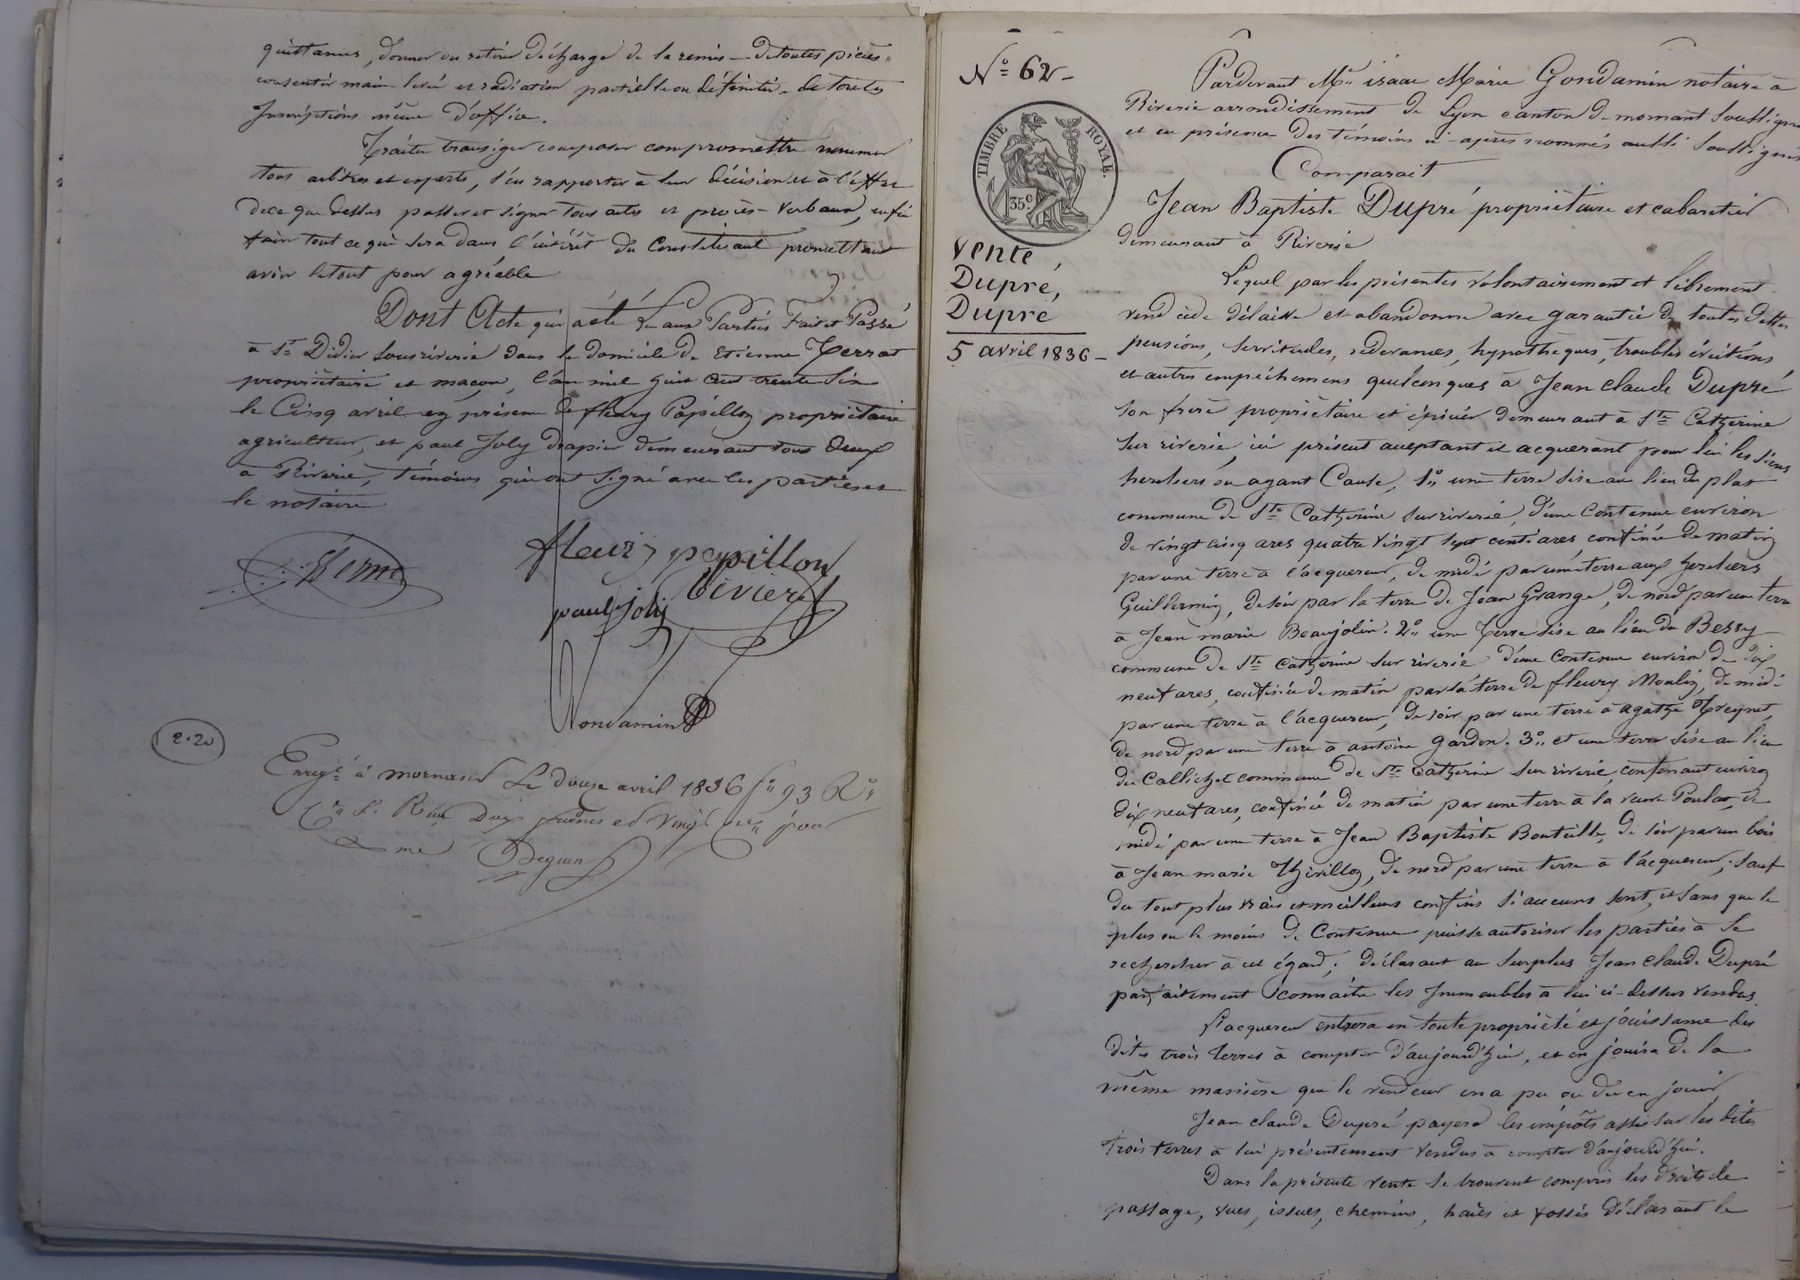 quittances, donner ou retirer décharge de la remise de toutes pièces,
consentir main levée et radiation partielle ou définitive de toutes
Inscriptions même d'office.
Traiter transiger composer compromettre nommer
tous arbitres et experts, s'en rapporter à leur décision et à l'effet
de ce que dessus passer et signer tous actes et procès-verbaux, enfin
faire tout ce qui sera dans l'intérêt du Constituant promettant
avoir le tout pour agréable
Dont Acte qui a été Lu aux Parties Fait et Passé
à St Didier sous riverie dans le domicile de Etienne
propriétaire et maçon, l'an mil huit cent trente six
le Cinq avril en présence de fleury Papillon propriétaire
agriculteur, et paul Joly drapier demeurant tous deux
à Riverie, témoins qui ont signé avec les parties et
le notaire
fleury papillon
paul joly
Gondamin
2.20
Enregé à mornant Le douze avril 1836 fo 93 Ro
Co Reçu Deux francs et vingt pour
me
N° 62
TIMBRE ROYAL.
35c
Vente
Dupré,
Dupré
5 avril 1836
Pardevant Me isaac Marie Gondamin notaire à
Riverie arrondissement de Lyon canton de mornant soussigné
et en présence des témoins ci-après nommés aussi soussignés
Comparait
Jean Baptiste Dupré propriétaire et cabaretier
demeurant à Riverie
Lequel par les présentes volontairement et librement
vend cède délaisse et abandonne avec garantie de toutes dettes
pensions, servitudes, redevances, hypothèques, troubles évictions
et autres empêchemens quelconques à Jean claude Dupré
son frère propriétaire et épicier demeurant à Ste Catherine
sur riverie, ici présent acceptant et acquerant pour lui les siens
heritiers ou ayant Cause, 1° une terre sise au lieu du plat
commune de Ste Catherine sur riverie, d'une Contenue environ
de vingt cinq ares quatre vingt sept centiares confinée de matin
par une terre à l'acquereur, de midi par une terre aux heritiers
Guillermin, de soir par la terre de Jean Grange, de nord par une terre
à Jean marie Beaujolin. 2° une Terre sise au lieu du Bessy
commune de Ste Catherine sur riverie d'une Contenue environ de dix
neuf ares, confinée de matin par la terre de fleury Moulin, de midi
par une terre à l'acquereur, de soir par une terre à agathe
de nord par une terre à antoine gardon. 3° et une terre sise au lieu
du Callichet commune de Ste Catherine sur riverie, contenant environ
dix neuf ares, confinée de matin par une terre à la veuve Poulat, de
midi par une terre à Jean Baptiste Bouteille, de soir par un bois
à Jean marie Thivillon, de nord par une terre à l'acquereur, sauf
du tout plus vrais et meilleurs confins si aucuns sont, et sans que le
plus ou le moins de Contenue puisse autoriser les parties à se
rechercher à cet égard; déclarant au surplus Jean Claude Dupré
parfaitement connaitre les Immeubles à lui ci-dessus vendus.
L'acquereur entrera en toute propriété et jouissance des
dites trois terres à compter d'aujourd'hui, et en jouira de la
même manière que le vendeur en a pu ou du en jouir,
Jean claude Dupré payera les impôts assis sur les dites
trois terres à lui présentement vendus à compter d'aujourd'hui.
Dans la présente vente se trouvent compris les droits de
passage, vues, issues, chemins, haies et fossés déclarant le